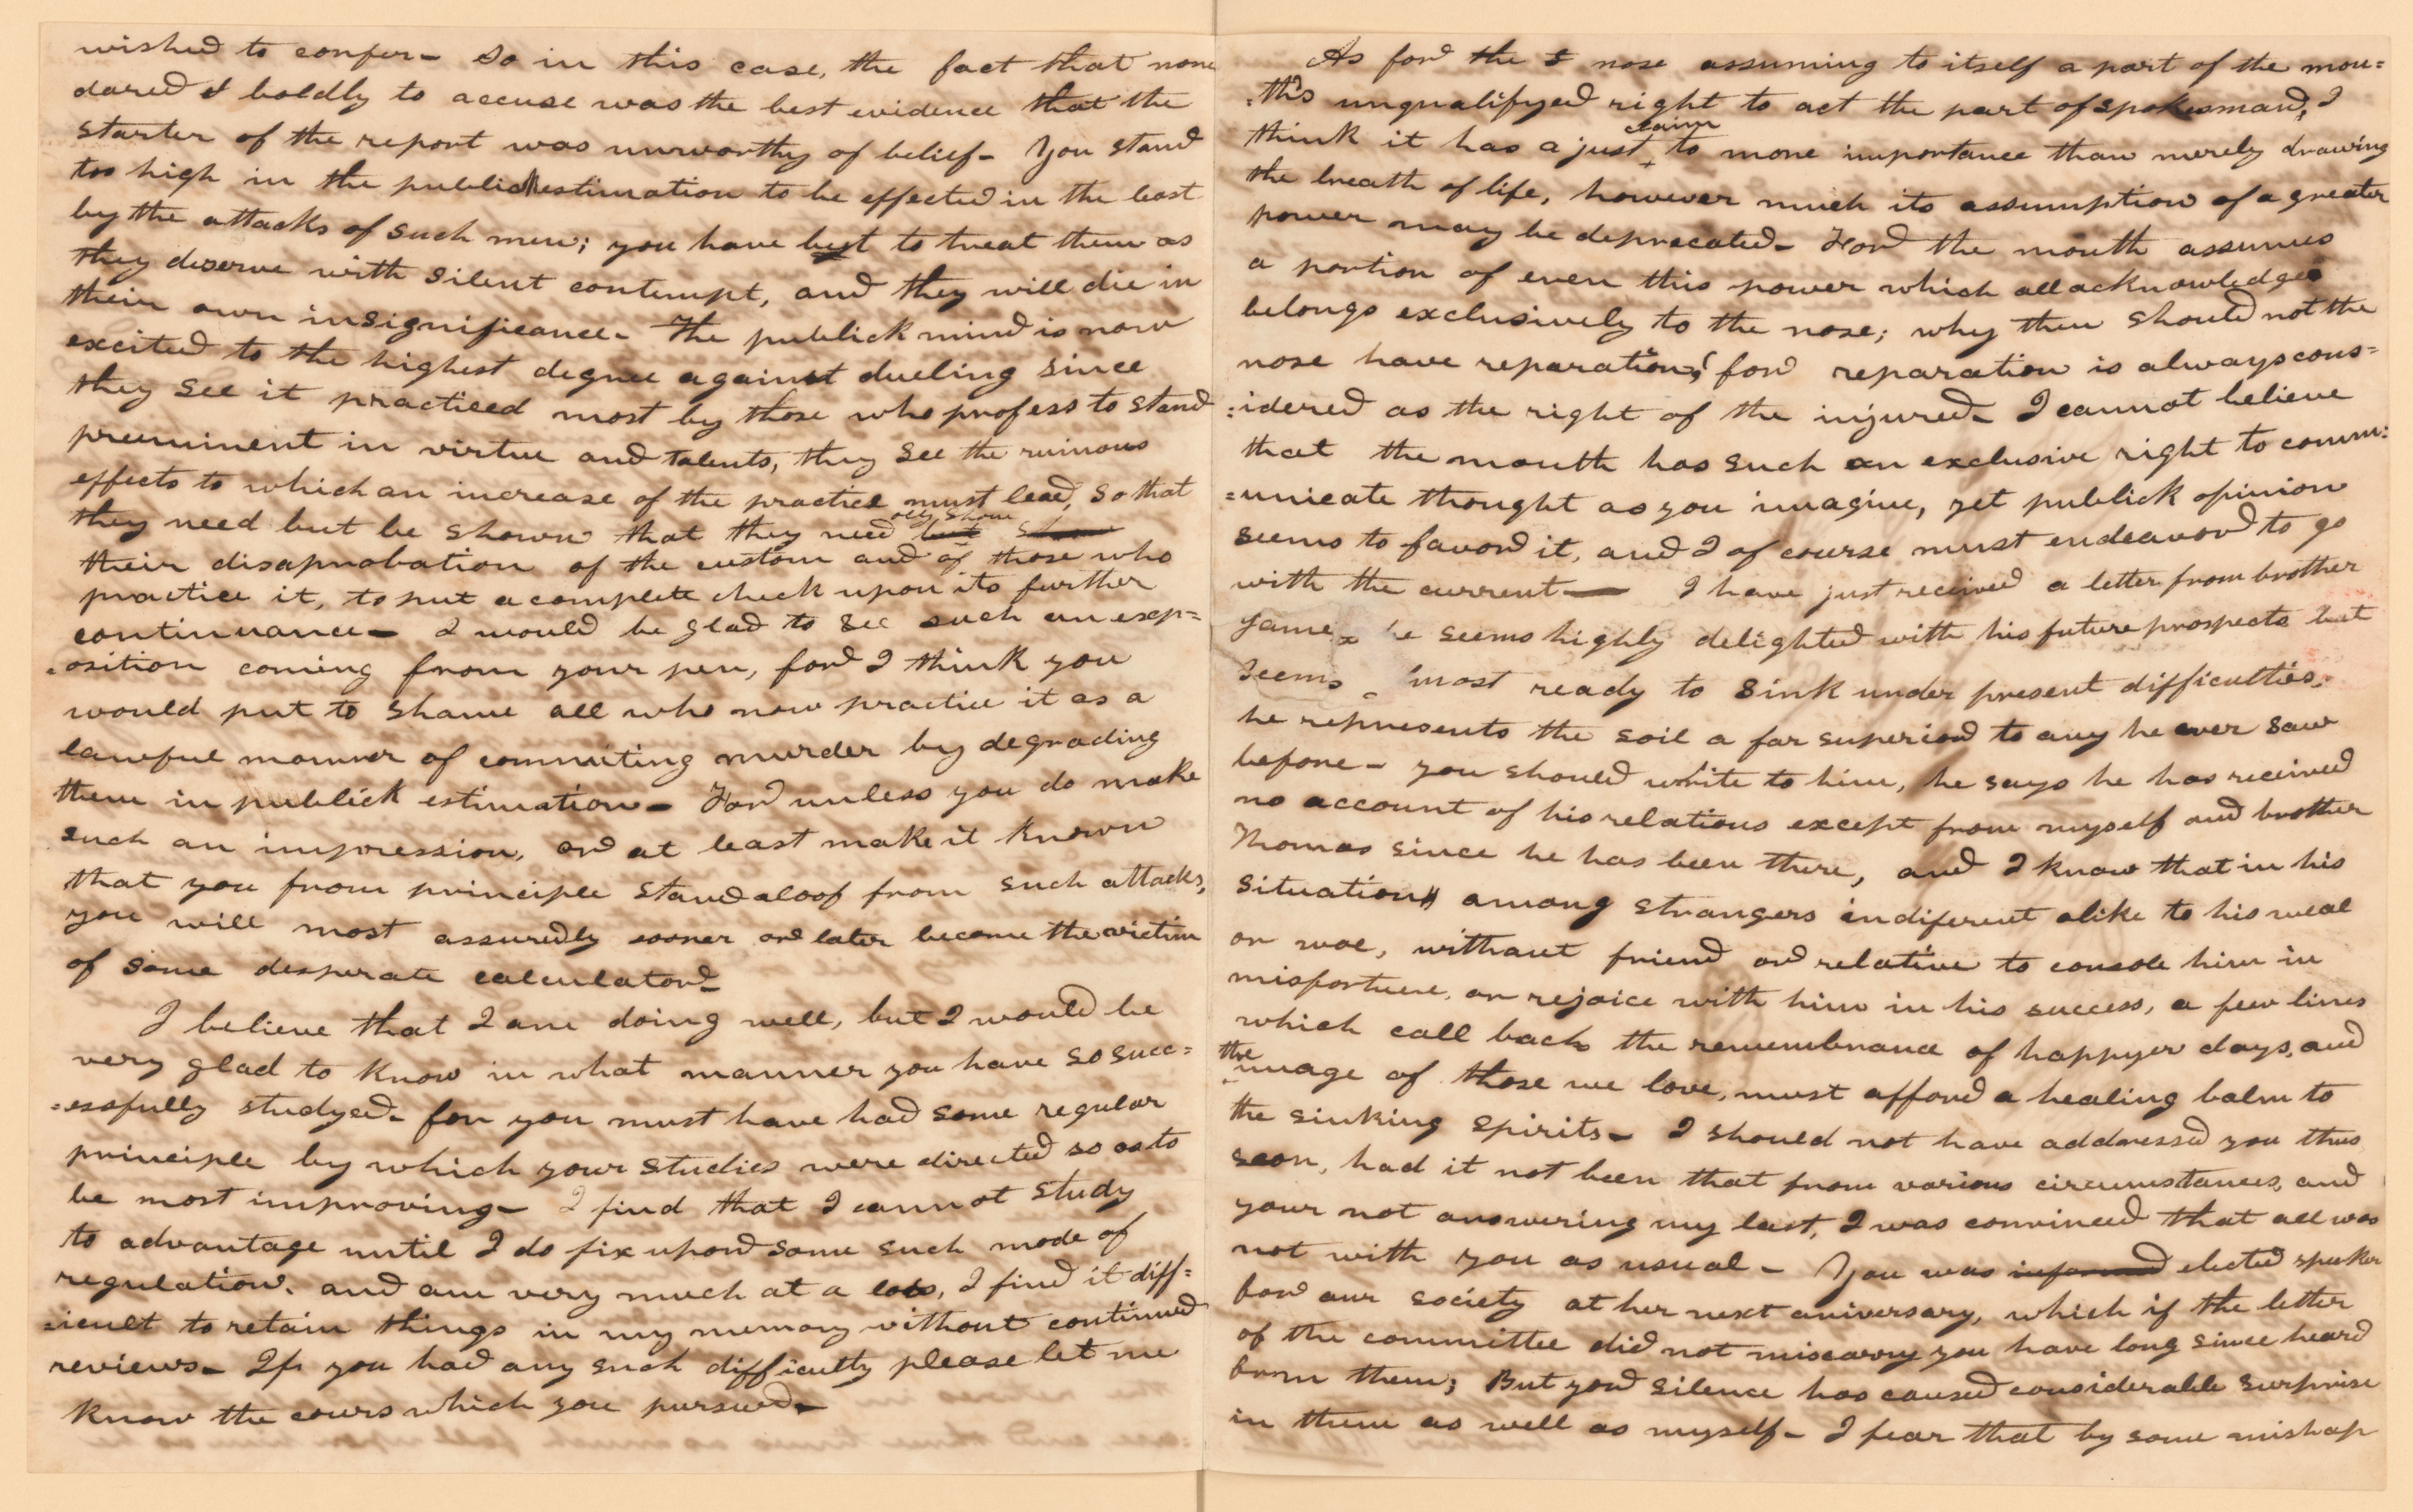 wished to confer- So in this case, the fact that none
dared & boldly to accuse was the best evidence that the
starter of the report was unworthy of belief- You stand
too high in the public estimation to be effected in the least
by the attacks of such men; you have best to treat them as
they deserve with silent contempt, and they will die in
their own insignificance- The publick mind is now
excited to the highest degree against dueling since
they see it practiced most by those who profess to stand
preeminent in virtue and talents, they see the ruinous
effects to which an increase of the practice must lead, so that
they need but be shown that they need only show but show
their disaprobation of the custom and of those who
practice it, to put a complete check upon its further
continuance- I would be glad to see such an exep=
=osition coming from your pen, for I think you
would put to shame all who now practice it as a
lawful manner of commiting murder by degrading
them in publick estimation- For unless you do make
such an impression, or at least make it known
that you from principle stand aloof from such attacks,
you will most assuredly sooner or later become the victim
of some desperate calculator-
I believe that I am doing well, but I would be
very glad to know in what manner you have so succ=
=essfully studyed- for you must have had some regular
principle by which your studies were directed so as to
be most improving- I find that I cannot study
to advantage until I do fix upon some such mode of
regulation. and am very much at a loss, I find it diff=
=icult to retain things in my memory without continued
reviews- If you had any such difficulty please let me
know the cours which you pursued-
As for the nose assuming to itself a part of the mou=
=th's unqualifyed right to act the part of spokesman, I
think it has a just claim to more importance than merely drawing
the breath of life, however much its assumption of a greater
power may be deprecated- For the mouth assumes
a portion of even this power which all acknowledge
belongs exclusively to the nose; why then should not the
nose have reparation? for reparation is always cons=
=idered as the right of the injured- I cannot believe
that the mouth has such an exclusive right to comm=
=unicate thought as you imagine, yet publick opinion
seems to favor it, and I of course must endeavor to go
with the current- I have just received a letter from brother
James he seems highly delighted with his future prospects but
seems most ready to sink under present difficulties.
he represents the soil a far superior to any he ever saw
before- you should write to him, he says he has received
no account of his relations except from myself and brother
Thomas since he has been there, and I know that in his
situation among strangers indiferent alike to his weal
or woe, without friend or relative to console him in
misfortune, or rejoice with him in his success, a few lines
which call back the remembrance of happyer days, and
the image of those we love, must afford a healing balm to
the sinking spirits- I should not have addressed you thus
soon, had it not been that from various circumstances, and
your not answering my last, I was convinced that all was
not with you as usual- You was informed elected speaker
for our society at her next aniversary, which if the letter
of the committee did not miscarry you have long since heard
from them; But your silence has caused considerable surprise
in them as well as myself- I fear that by some mishap